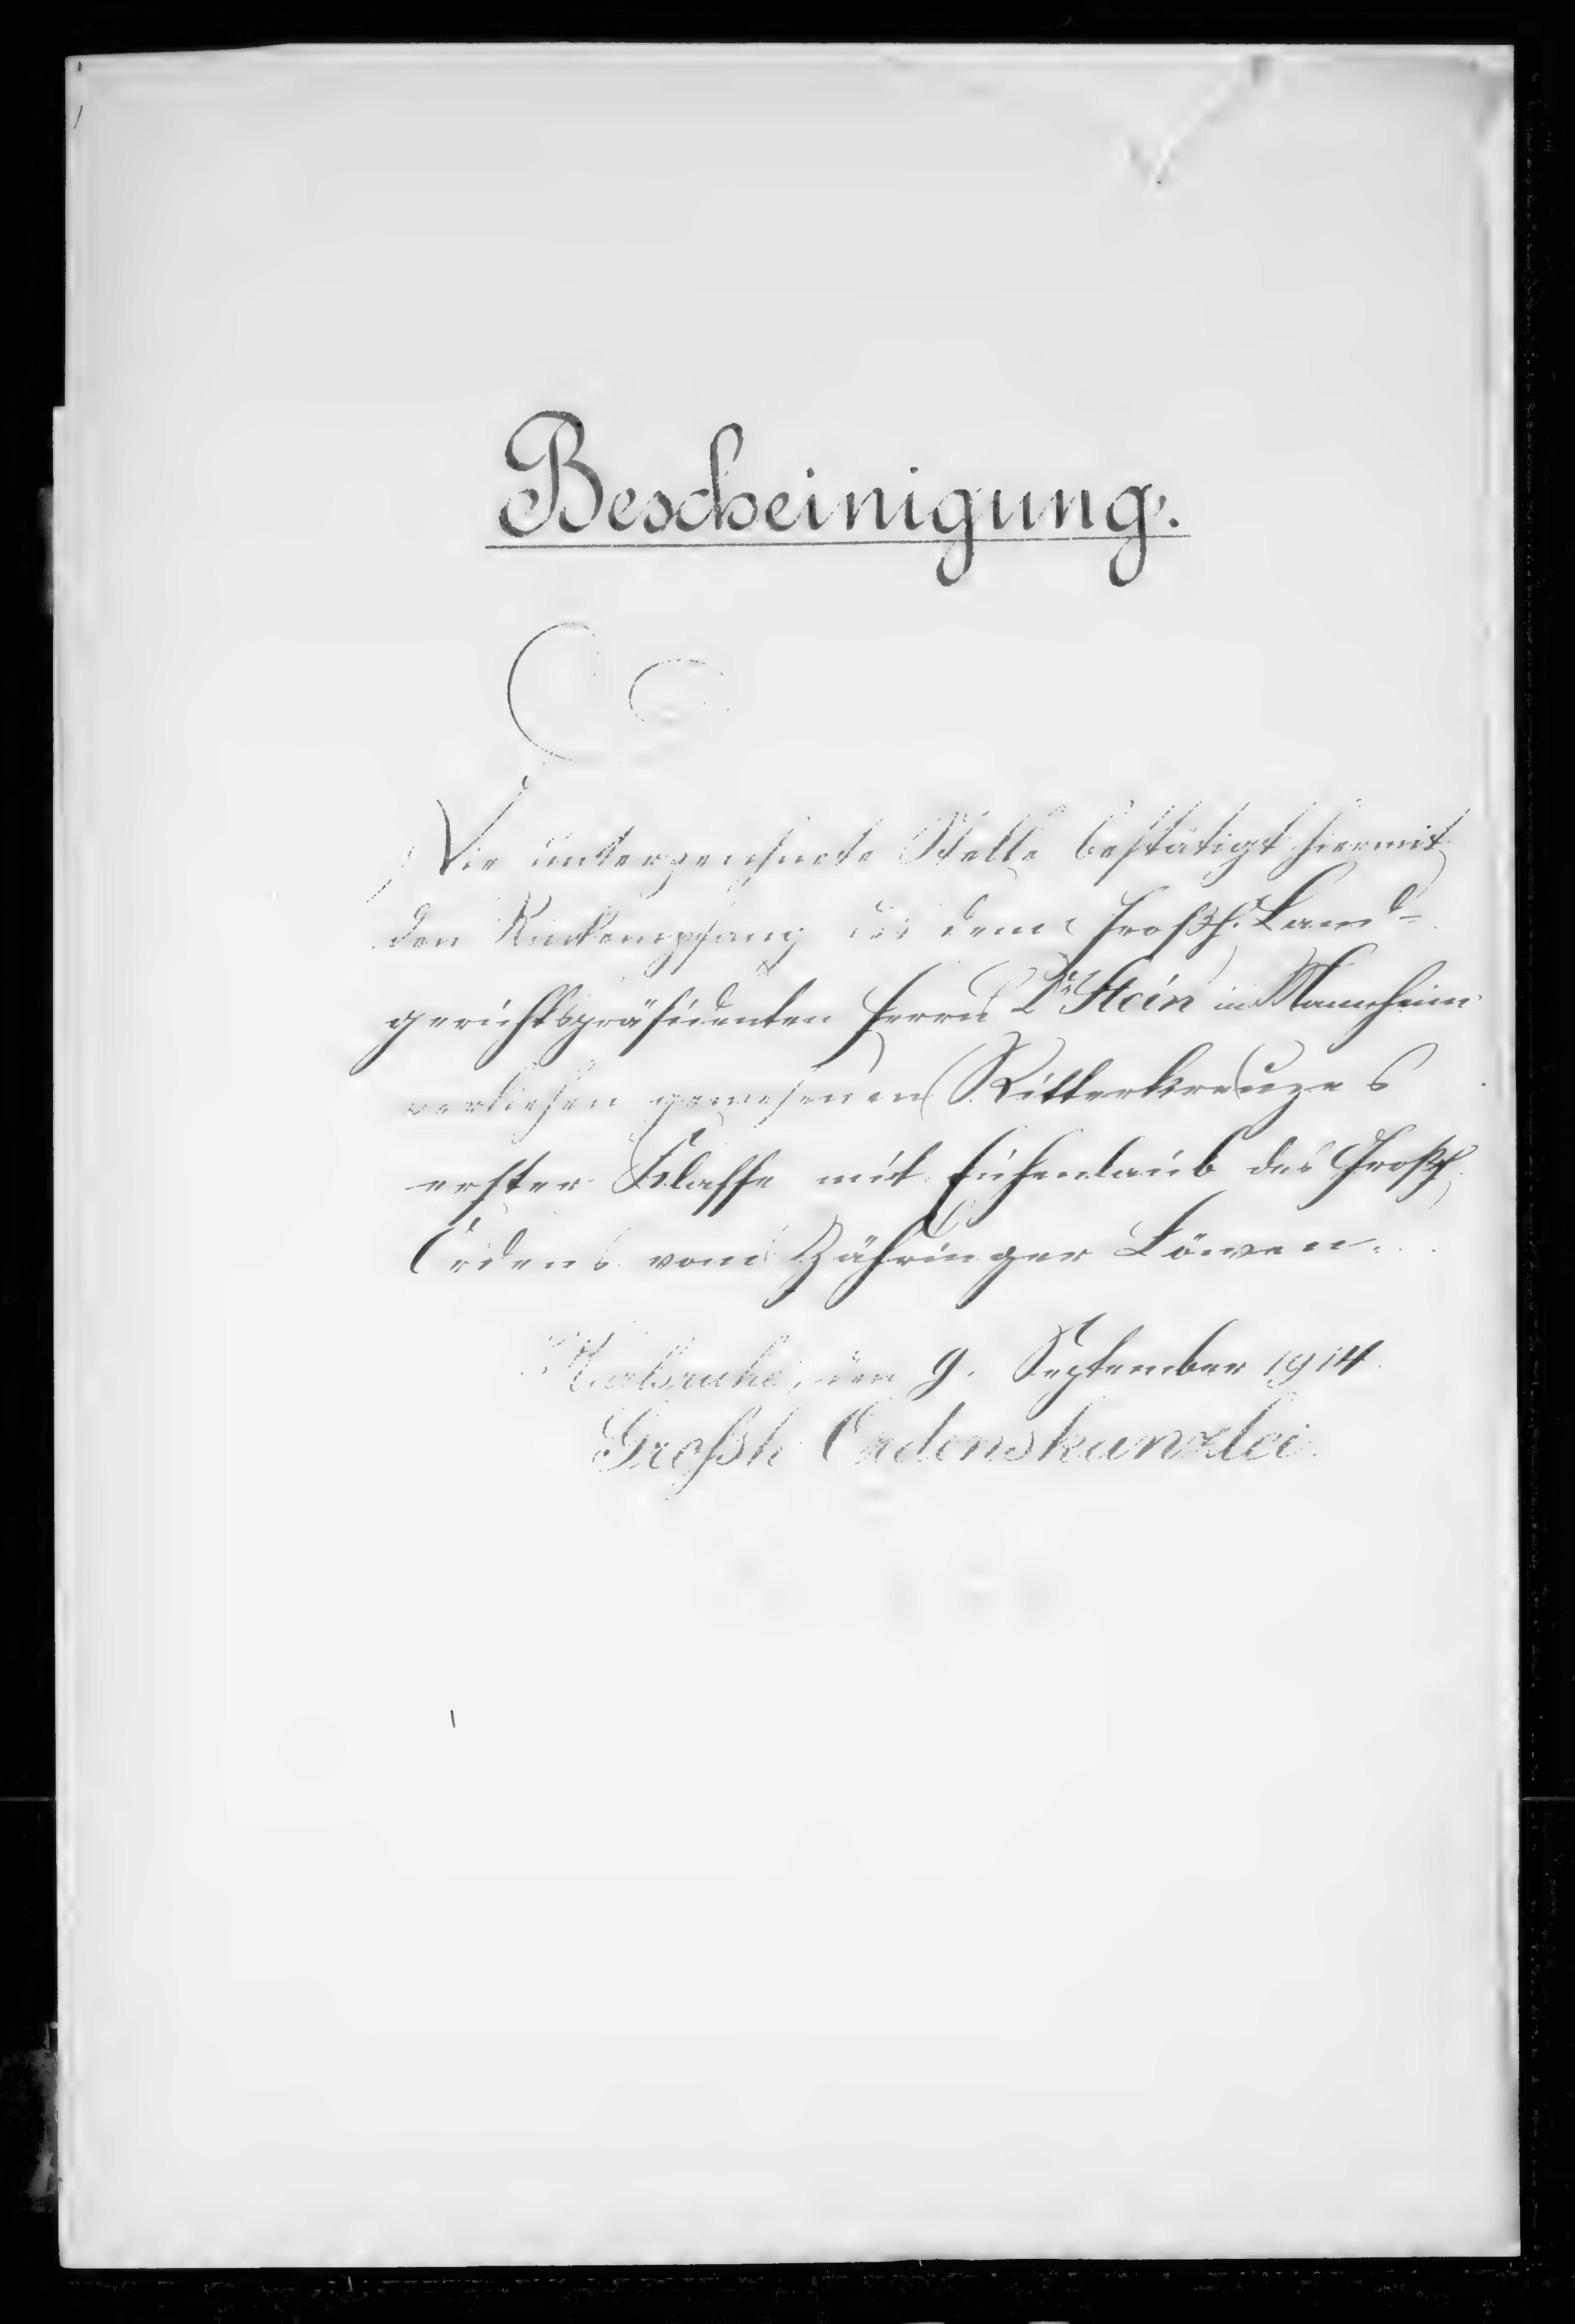 Bescheinigung.
Die unterzeichnete Stelle bestätigt hiermit
den Rückempfang des dem Großh. Land-
gerichtspräsidenten Herrn Dr. Stein in Mannheim
verliehen gewesenen Ritterkreuzes
erster Klasse mit Eichenlaub des Großh.
Ordens vom Zähringer Löwen.
Karlsruhe, den 9. September 1914.
Großh. Ordenskanzlei.